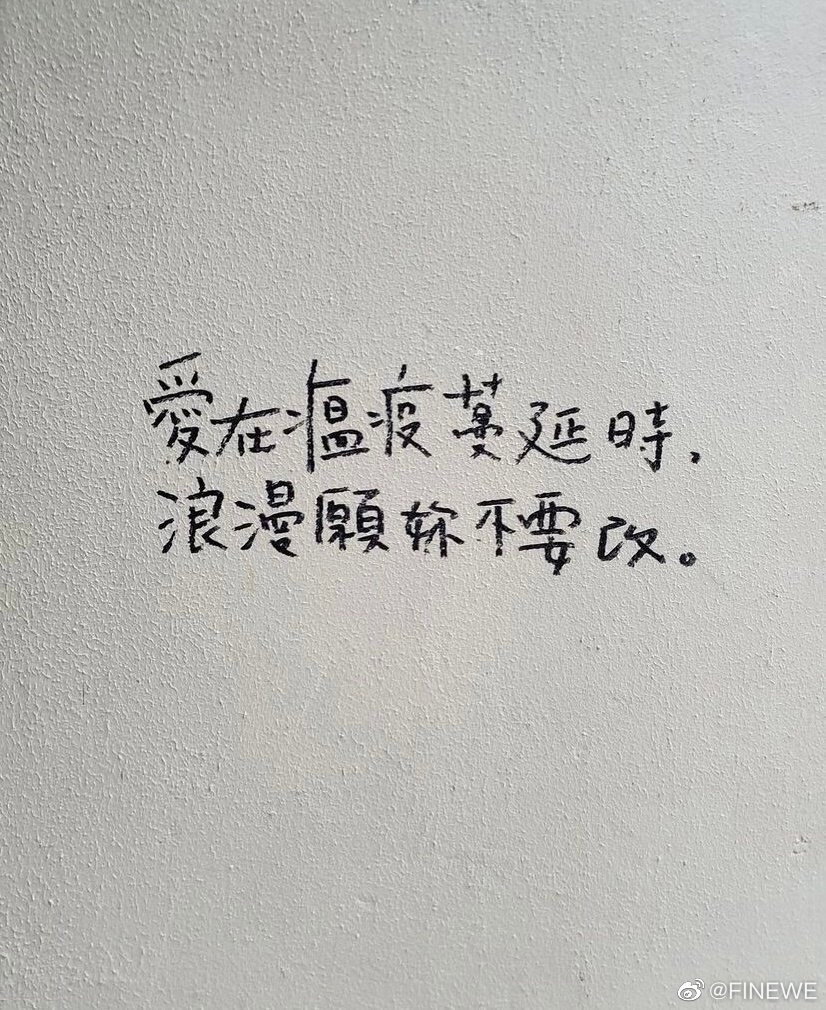 愛在瘟疫蔓延時，
浪漫願妳不要改。
@FINEWE